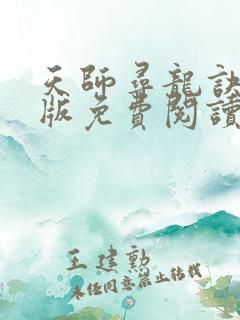 天師尋龍訣
版免費閱讀
王建勳
未經同意禁止轉載